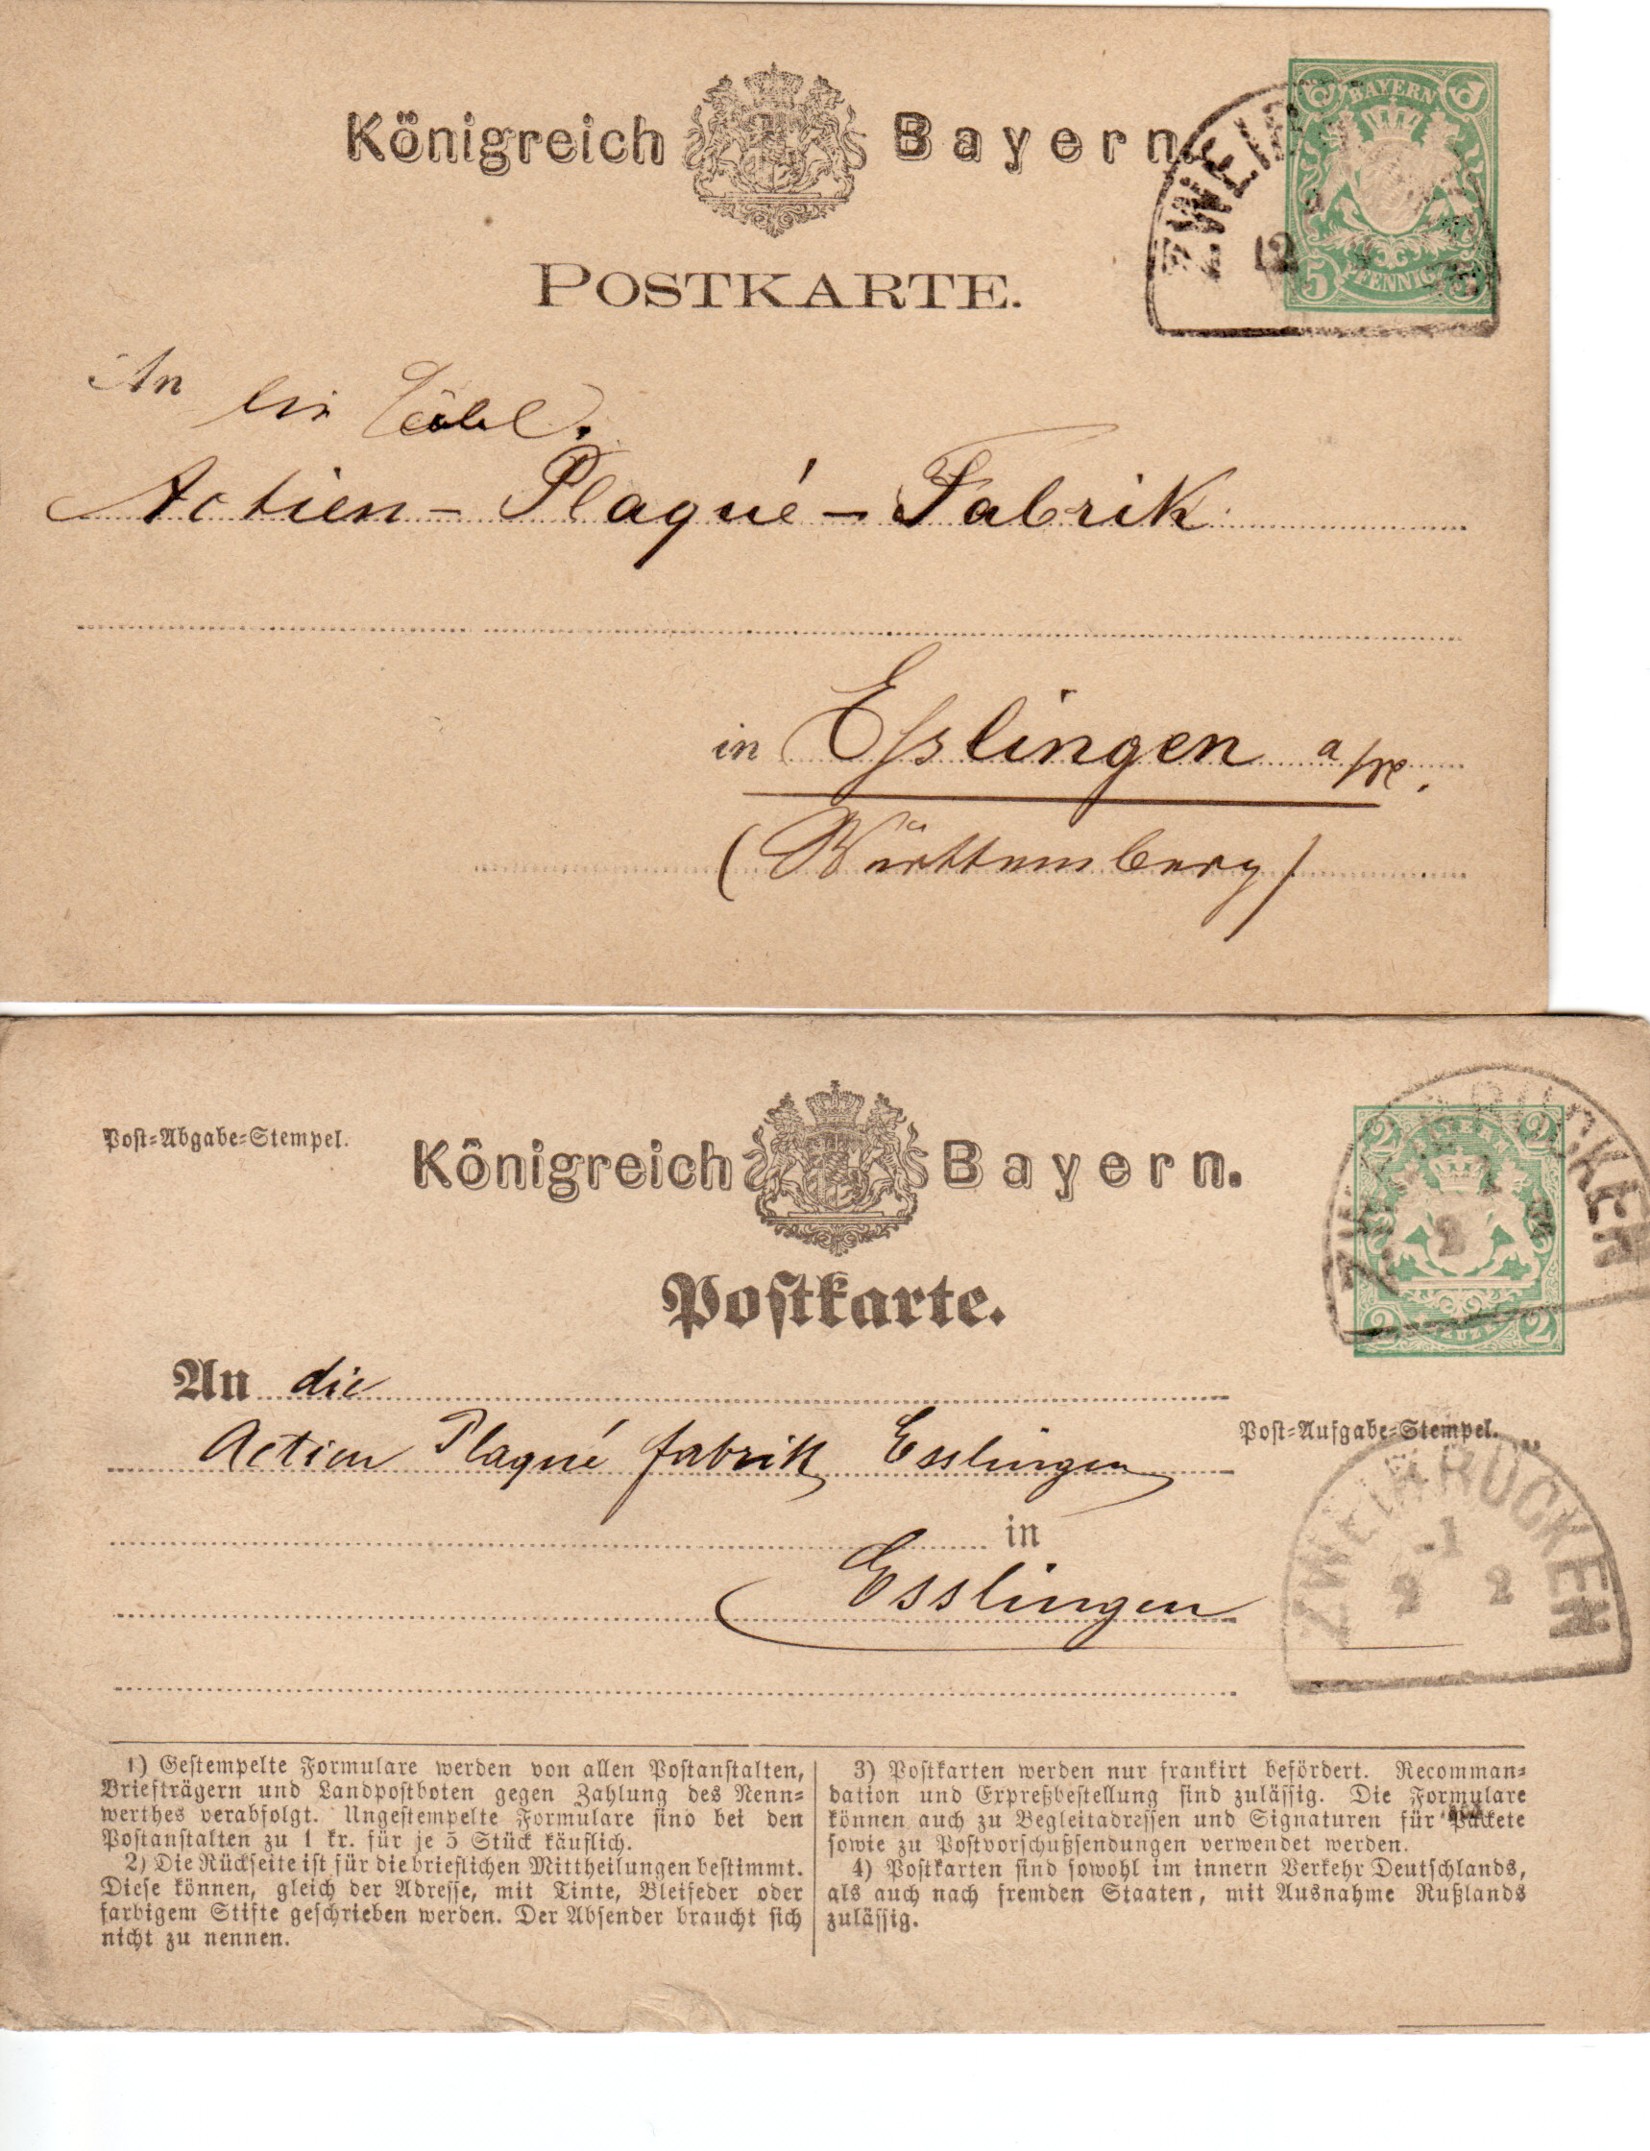 Königreich Bayern.
BAYERN
5 PFENNIG 5
ZWEI
12
POSTKARTE.
An
Actien-Plaqué-Fabrik
in Esslingen a/N.
(Württemberg)
Post-Abgabe-Stempel.
Königreich Bayern.
2 BAYERN 2
2 2
Postkarte.
An die
Actien Plaqué fabrik Esslingen
Post-Aufgabe-Stempel.
ZWEIBRÜCKEN
-1
2 2
in
Esslingen
1) Gestempelte Formulare werden von allen Postanstalten,
Briefträgern und Landpostboten gegen Zahlung des Nenn-
werthes verabfolgt. Ungestempelte Formulare sind bei den
Postanstalten zu 1 kr. für je 5 Stück käuflich.
2) Die Rückseite ist für die brieflichen Mittheilungen bestimmt.
Diese können, gleich der Adresse, mit Tinte, Bleifeder oder
farbigem Stifte geschrieben werden. Der Absender braucht sich
nicht zu nennen.
3) Postkarten werden nur frankirt befördert. Recomman-
dation und Expreßbestellung sind zulässig. Die Formulare
können auch zu Begleitadressen und Signaturen für Packete
sowie zu Postvorschußsendungen verwendet werden.
4) Postkarten sind sowohl im innern Verkehr Deutschlands,
als auch nach fremden Staaten, mit Ausnahme Rußlands
zulässig.